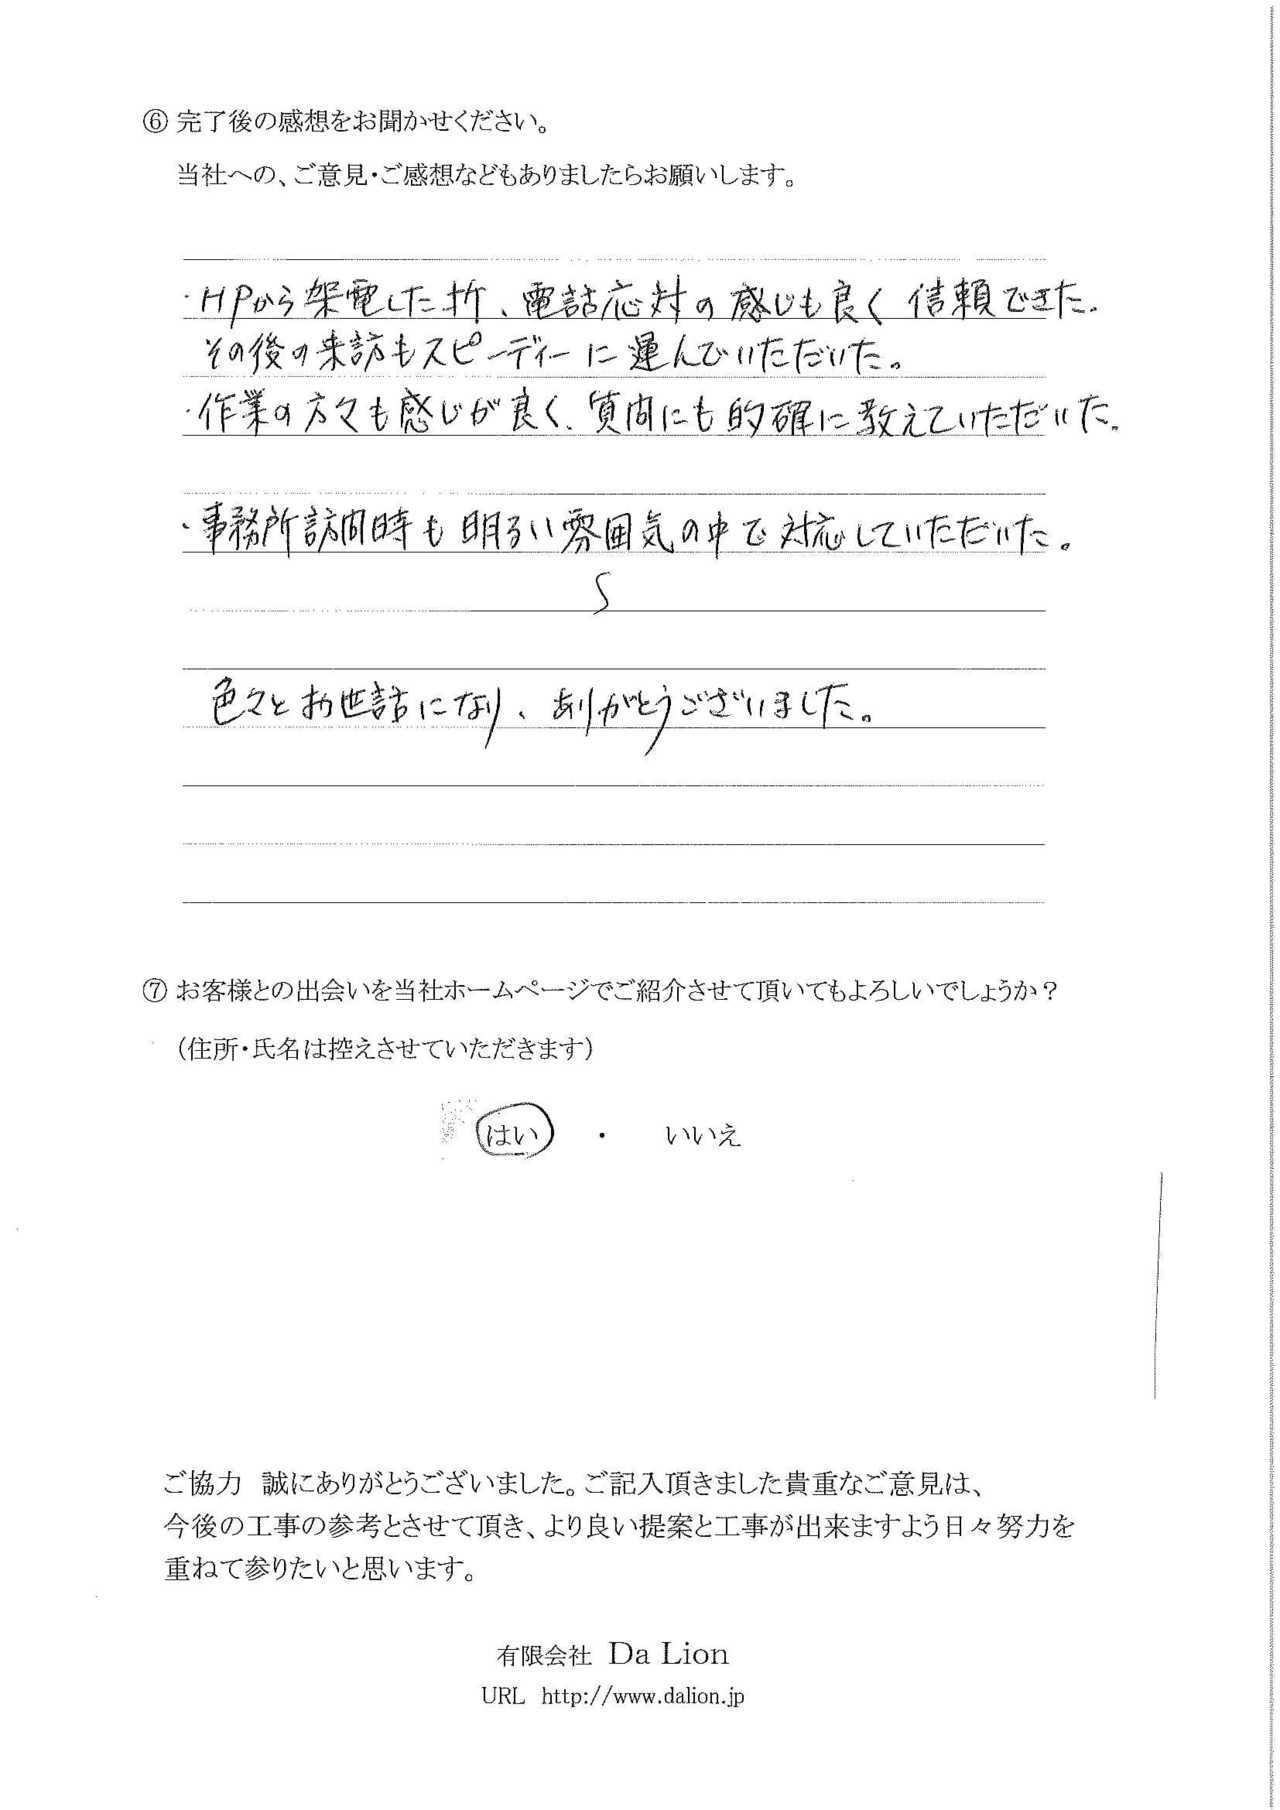 ⑥ 完了後の感想をお聞かせください。
当社への、ご意見・ご感想などもありましたらお願いします。
・HPから架電した折、電話応対の感じも良く信頼できた。
その後の来訪もスピーディーに運んでいただいた。
・作業の方々も感じが良く、質問にも的確に教えていただいた。
・事務所訪問時も明るい雰囲気の中で対応していただいた。
色々とお世話になり、ありがとうございました。
⑦ お客様との出会いを当社ホームページでご紹介させて頂いてもよろしいでしょうか？
（住所・氏名は控えさせていただきます）
はい ・ いいえ
ご協力 誠にありがとうございました。ご記入頂きました貴重なご意見は、
今後の工事の参考とさせて頂き、より良い提案と工事が出来ますよう日々努力を
重ねて参りたいと思います。
有限会社 Da Lion
URL http://www.dalion.jp